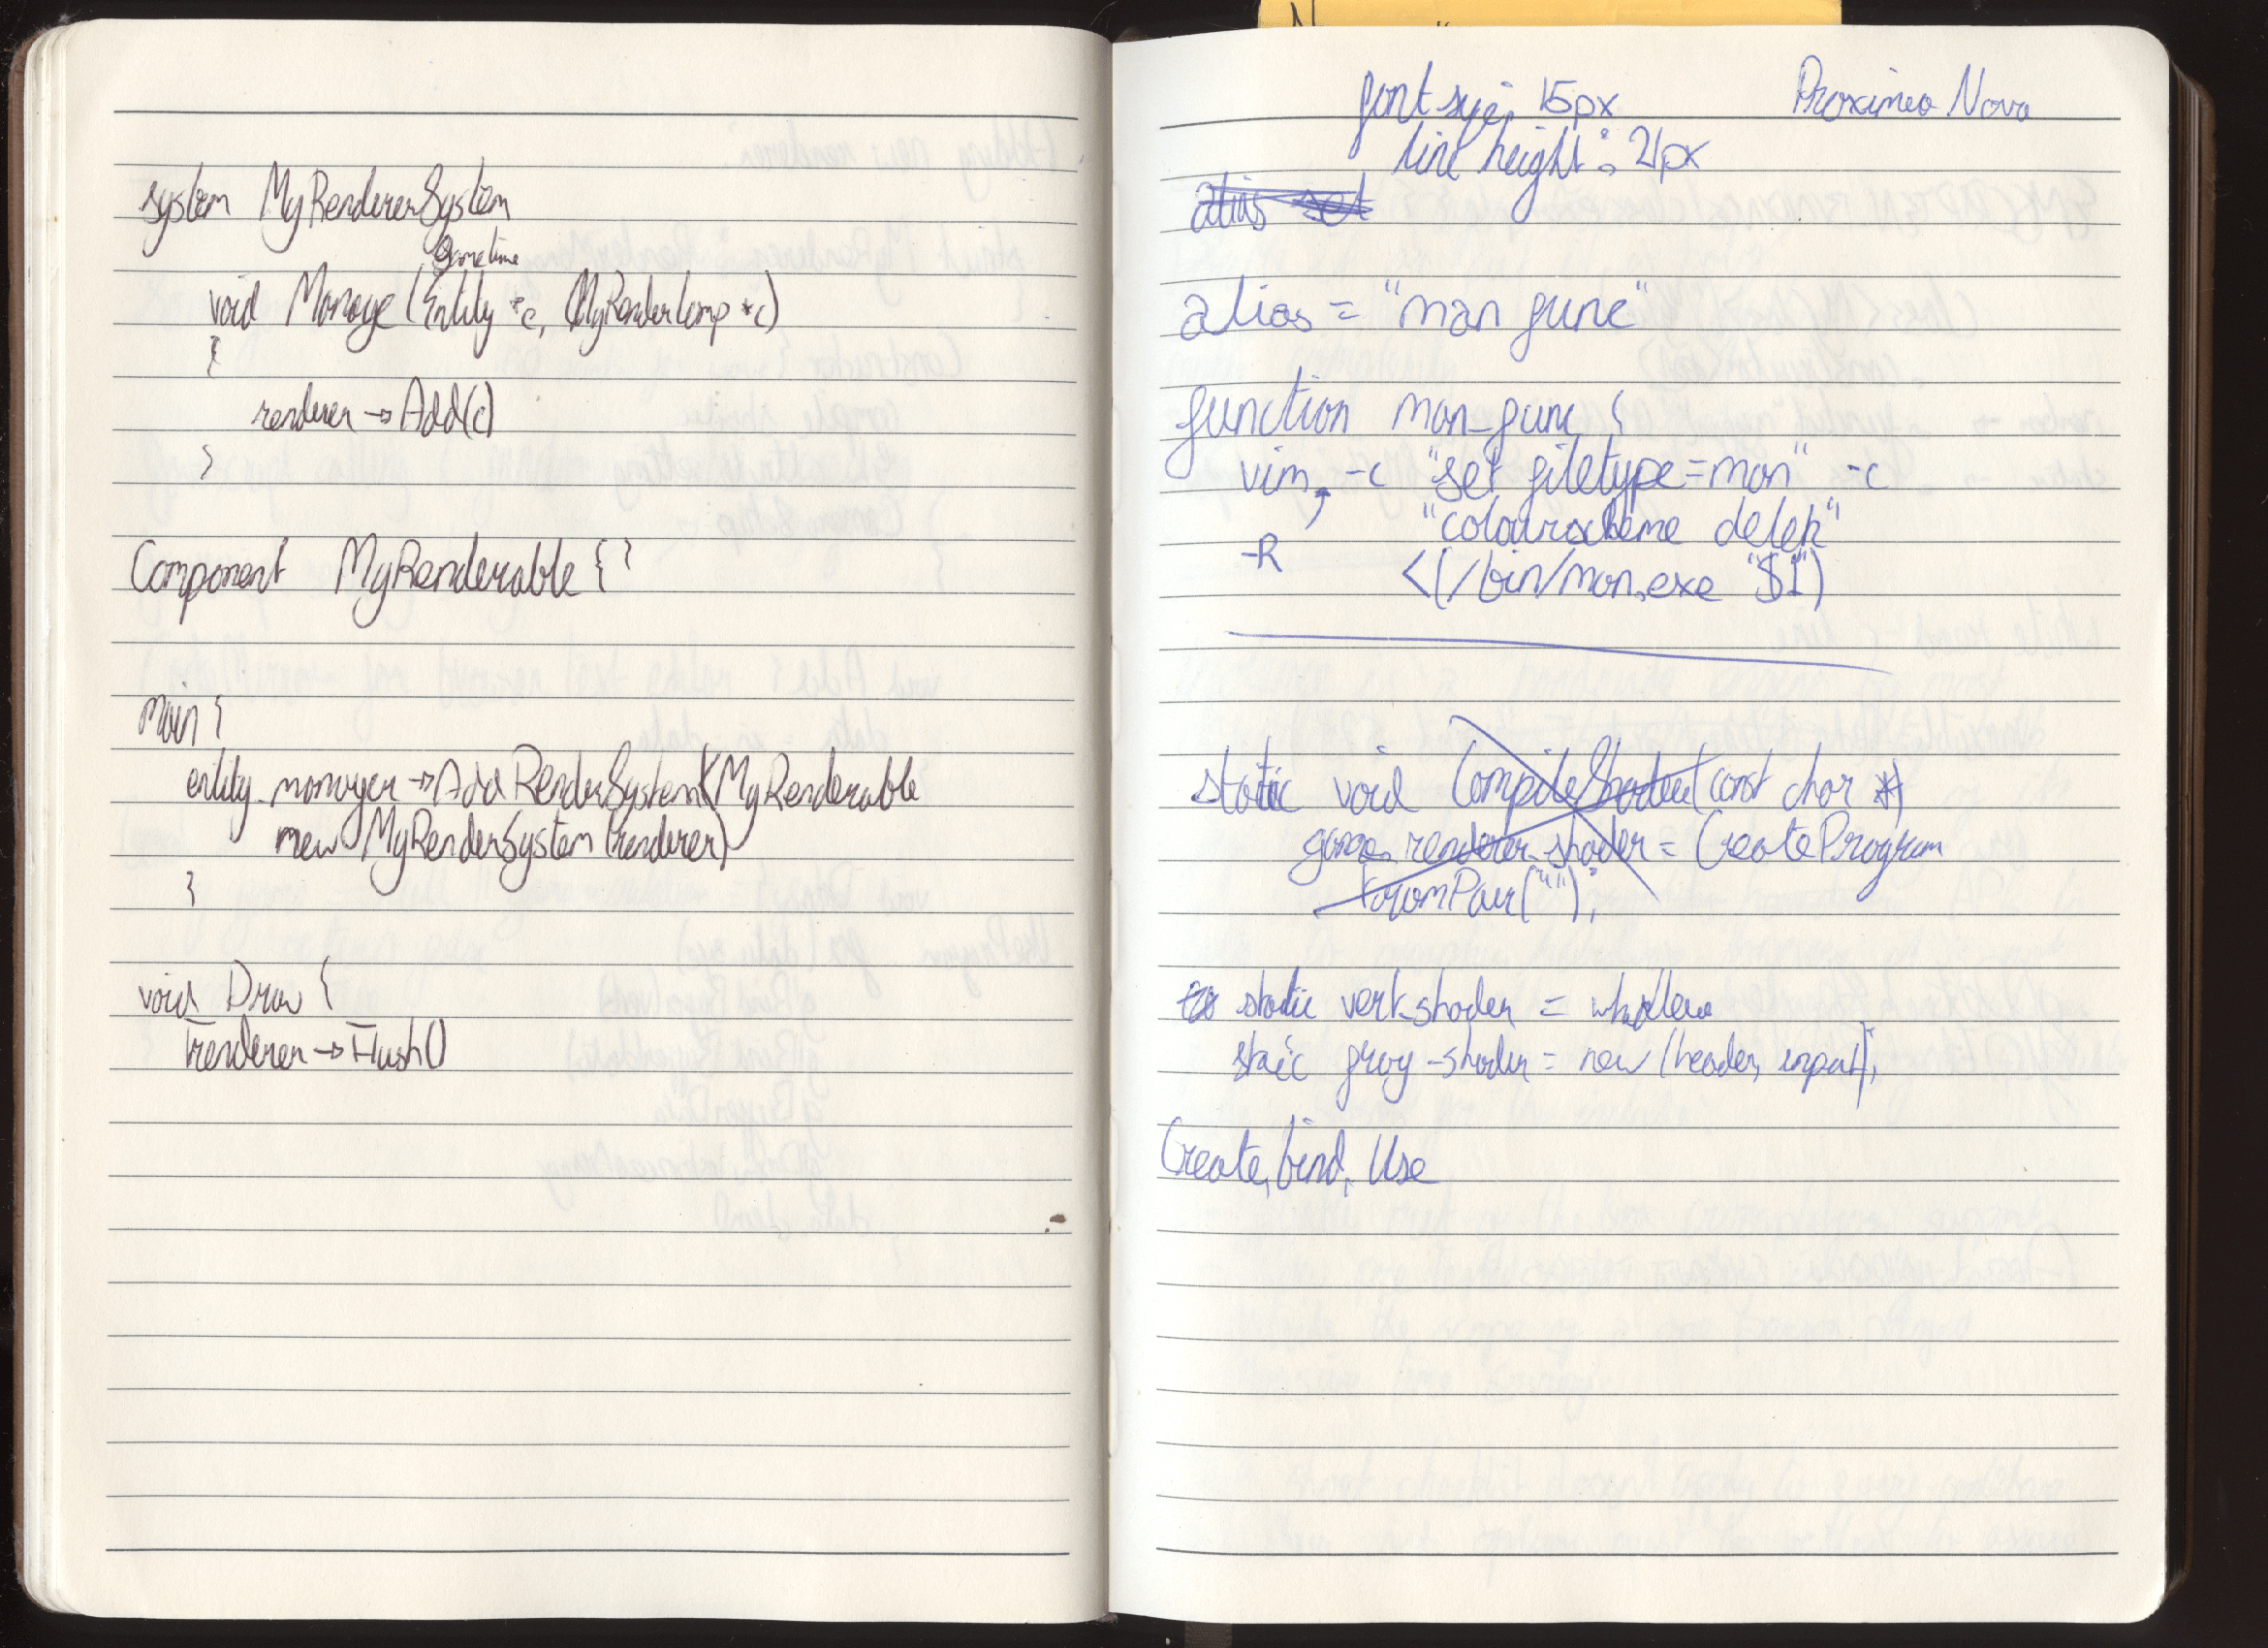 system MyRendererSystem
Gametime
void Manage (Entity *e, MyRenderComp *c)
{
renderer → Add(c)
}
Component MyRenderable { }
main {
entity_manager → Add RenderSystem(MyRenderable
new MyRenderSystem (renderer)
}
void Draw {
renderer → Flush()
font size: 15px Proximea Nova
line height: 21px
alias set
alias = "man func"
function man_func {
vim, -c "set filetype=man" -c
"colourscheme delek"
-R <(/bin/man.exe "$1")
static void CompileShader(const char *)
renderer_shader = CreateProgram
FromPair("");
static vert_shader = whatever
static frag_shader = new (header, input);
Create, bind, Use